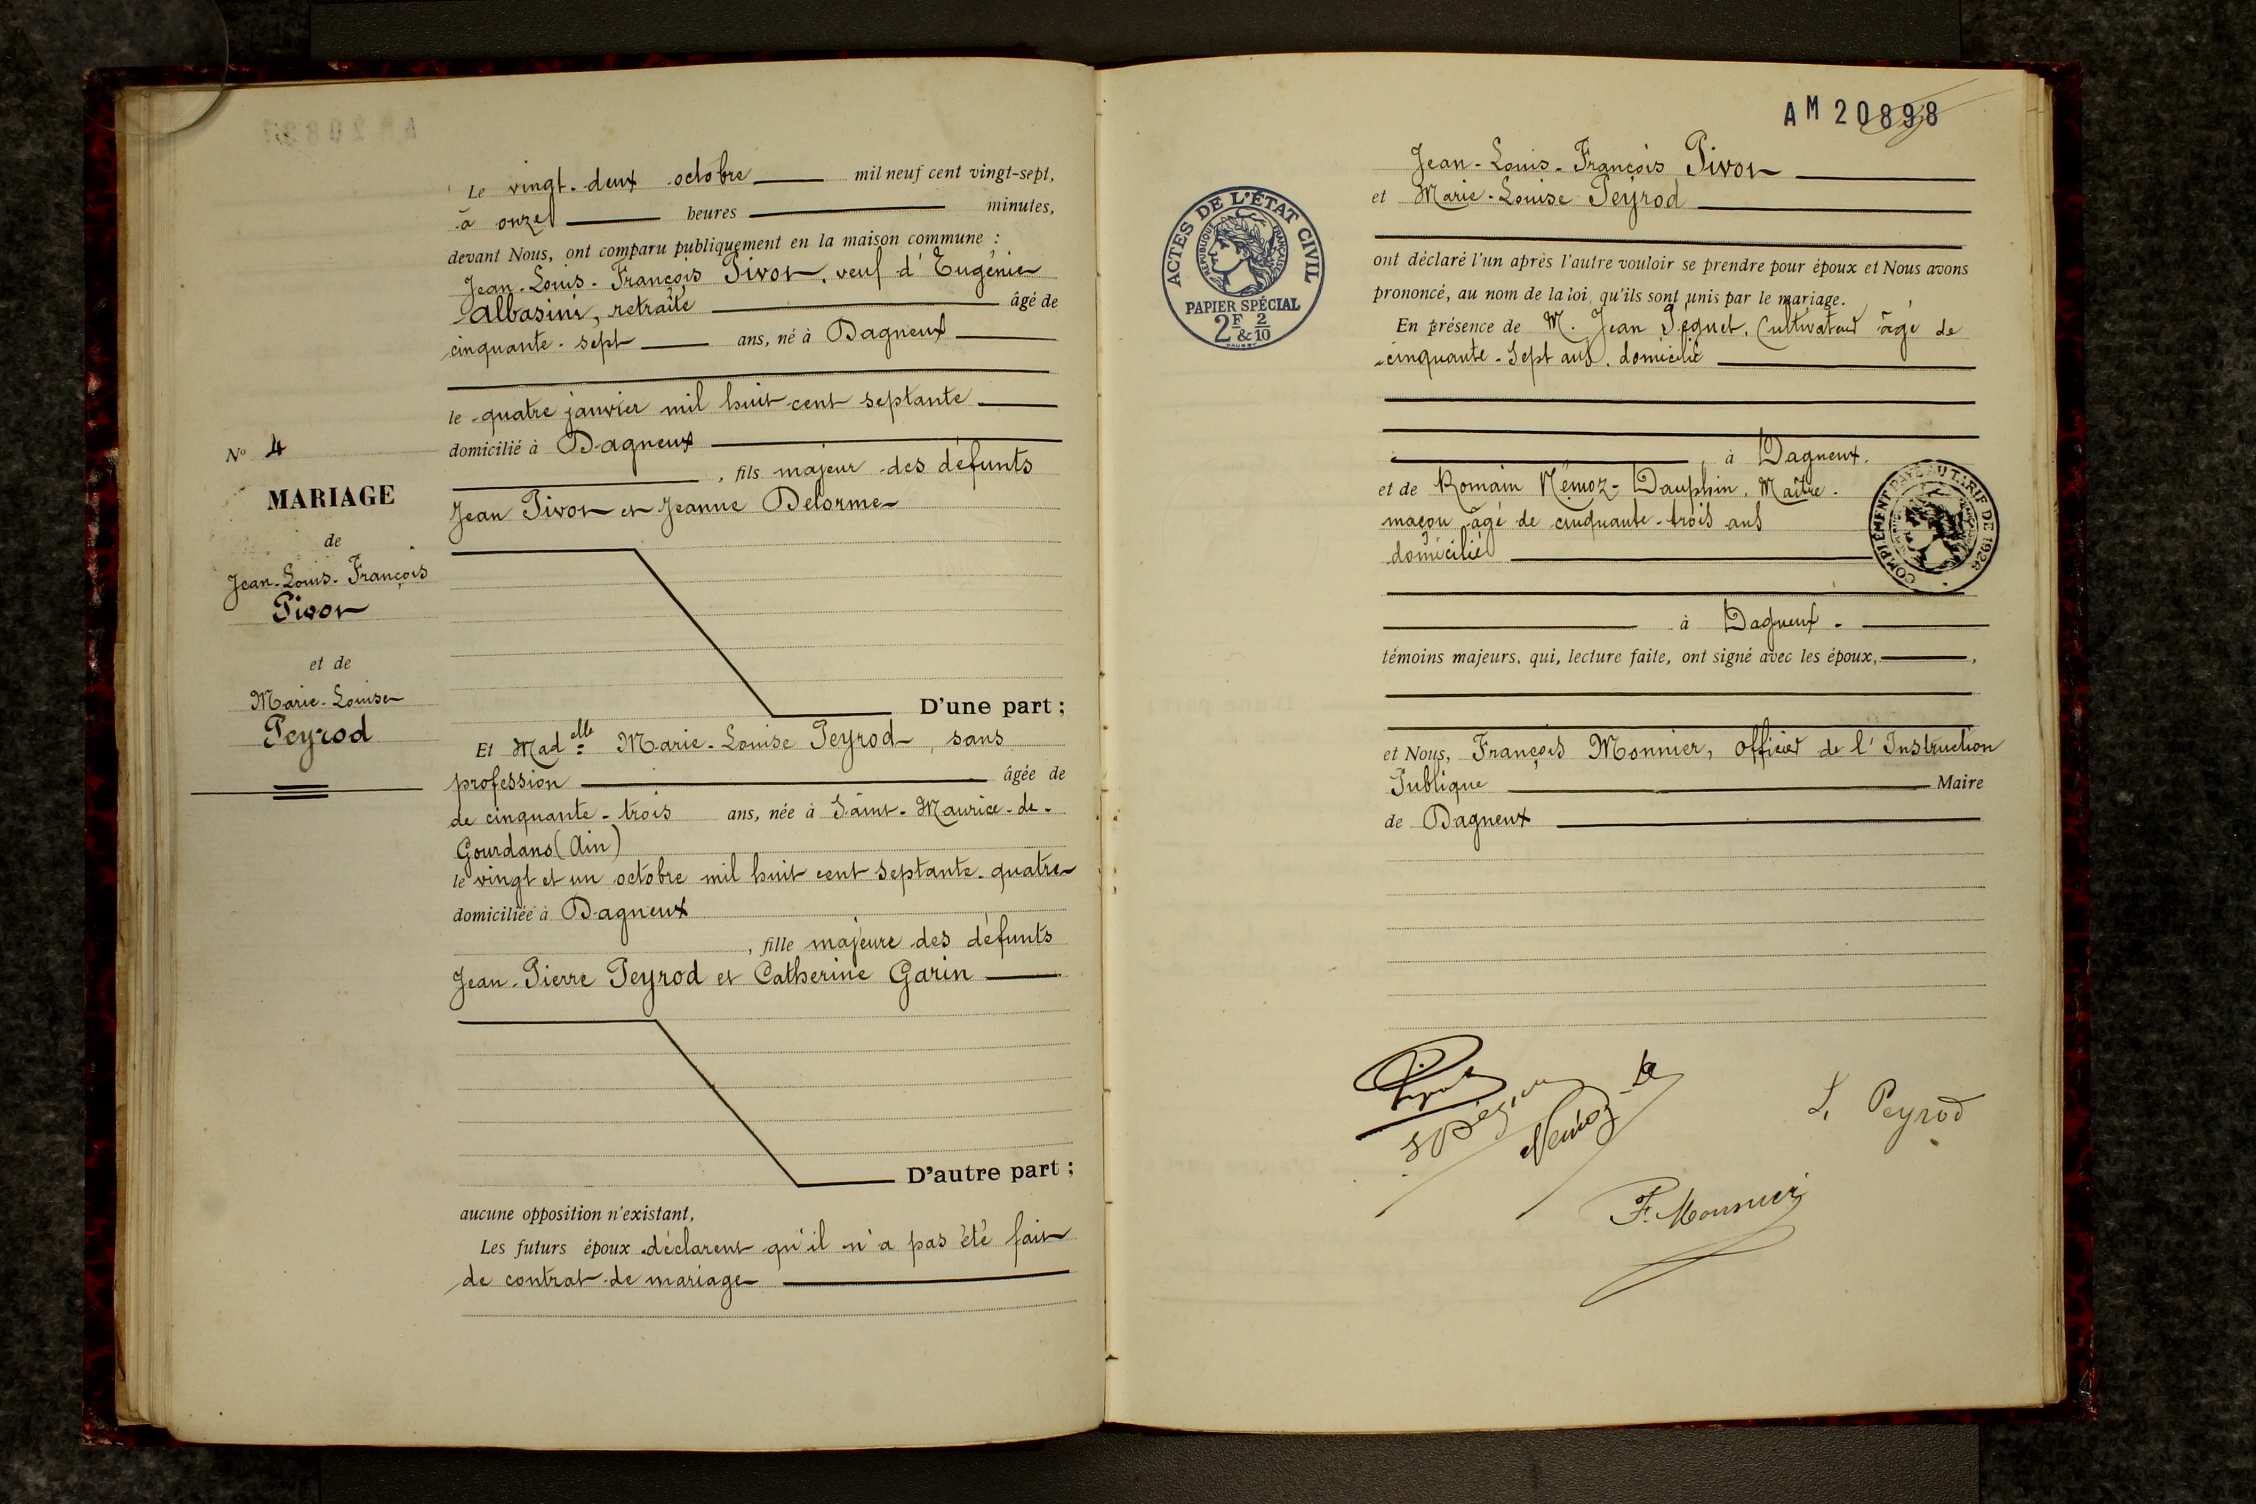 Le vingt-deux octobre mil neuf cent vingt-sept,
à onze heures minutes,
devant Nous, ont comparu publiquement en la maison commune :
Jean-Louis-François Pivot, veuf d'Eugénie
Albasini, retraité âgé de
cinquante-sept ans, né à Dagneux
le quatre janvier mil huit cent septante
domicilié à Dagneux
, fils majeur des défunts
Jean Pivot et Jeanne Delorme
D'une part ;
Nº 4
MARIAGE
de
Jean-Louis-François
Pivot
et de
Marie-Louise
Peyrod
Et Mad elle Marie-Louise Peyrod, sans
profession âgée de
de cinquante-trois ans, née à Saint-Maurice-de-
Gourdans (Ain)
le vingt et un octobre mil huit cent septante-quatre
domiciliée à Dagneux
, fille majeure des défunts
Jean-Pierre Peyrod et Catherine Garin
D'autre part ;
aucune opposition n'existant,
Les futurs époux déclarent qu'il n'a pas été fait
de contrat de mariage
AM 20898
Jean-Louis-François Pivot
et Marie-Louise Peyrod
ACTES DE L'ÉTAT CIVIL
RÉPUBLIQUE FRANÇAISE
PAPIER SPÉCIAL
2F & 2/10
ont déclaré l'un après l'autre vouloir se prendre pour époux et Nous avons
prononcé, au nom de la loi, qu'ils sont unis par le mariage.
En présence de M. Jean Péguet, Cultivateur âgé de
cinquante-sept ans, domicilié
, à Dagneux.
et de Romain Némoz-Dauphin, Maître-
maçon âgé de cinquante-trois ans
domicilié
COMPLÉMENT PAYÉ AU TARIF DE 1926
à Dagneux.
témoins majeurs, qui, lecture faite, ont signé avec les époux,
et Nous, François Monnier, officier de l'Instruction
Publique Maire
de Dagneux
Pivot
Némoz
L. Peyrod
F. Monnier